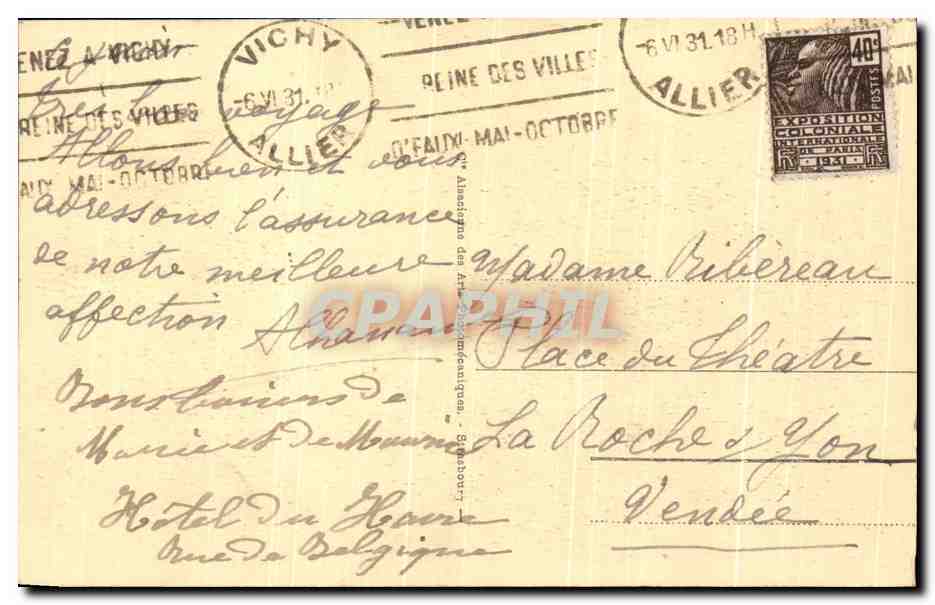 VENEZ
ENEZ A VICHY
REINE DES VILLES
AUX MAI-OCTOBRE
VICHY
-6.VI.31.18
ALLIER
REINE DES VILLES
D'EAUX. MAI-OCTOBRE
-6.VI.31.18 H
ALLIER
40c
POSTES
EXPOSITION
COLONIALE
INTERNATIONALE
DE PARIS
1931
Très bon voyage
Allons bien et vous
adressons l'assurance
de notre meilleure
affection
Bons baisers de
Marie et de
Hôtel du Havre
Rue de Belgique
Cie Alsacienne des Arts Photomécaniques. - Strasbourg
Madame Ribèreau
Place du Théatre
La Roche s/ Yon
Vendée
CPAPHIL